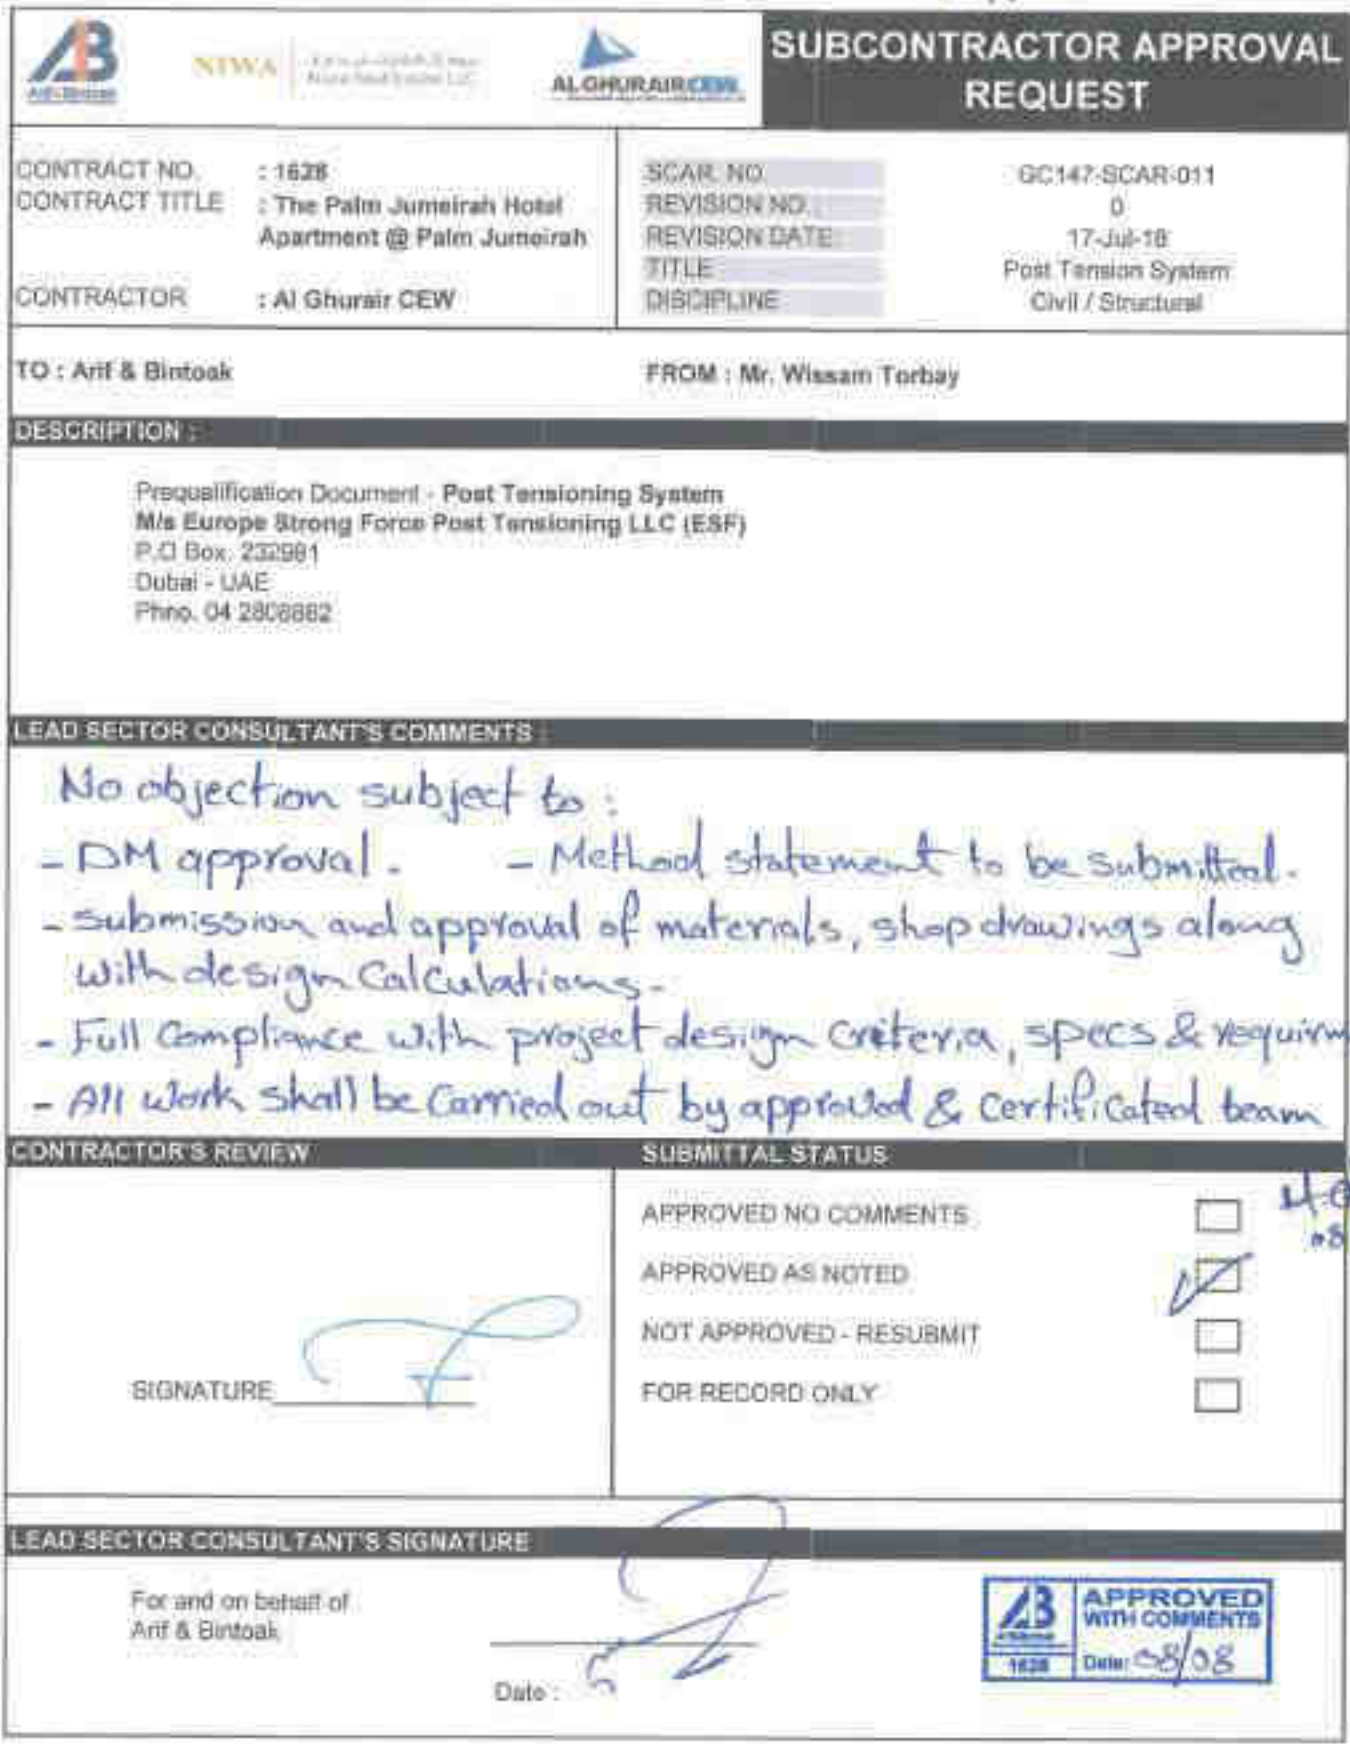 AB
Arif & Bintoak
NIWA
AL GHURAIR CEW
SUBCONTRACTOR APPROVAL
REQUEST
CONTRACT NO. : 1628
CONTRACT TITLE : The Palm Jumeirah Hotel
Apartment @ Palm Jumeirah
CONTRACTOR : Al Ghurair CEW
SCAR. NO. GC147-SCAR-011
REVISION NO.: 0
REVISION DATE: 17-Jul-18
TITLE Post Tension System
DISCIPLINE Civil / Structural
TO : Arif & Bintoak
FROM : Mr. Wissam Torbay
DESCRIPTION :
Prequalification Document - Post Tensioning System
M/s Europe Strong Force Post Tensioning LLC (ESF)
P.O Box. 232981
Dubai - UAE
Phno. 04 2808882
LEAD SECTOR CONSULTANT'S COMMENTS :
No objection subject to :
- DM approval. - Method statement to be submitted.
- submission and approval of materials, shop drawings along
with design Calculations.
- Full Compliance with project design criteria, specs & requirm
- All work shall be Carried out by approved & certificated team
CONTRACTOR'S REVIEW
SUBMITTAL STATUS
APPROVED NO COMMENTS
APPROVED AS NOTED
NOT APPROVED - RESUBMIT
FOR RECORD ONLY
SIGNATURE
LEAD SECTOR CONSULTANT'S SIGNATURE
For and on behalf of
Arif & Bintoak
Date :
AB
1628
APPROVED
WITH COMMENTS
Date: 08/08